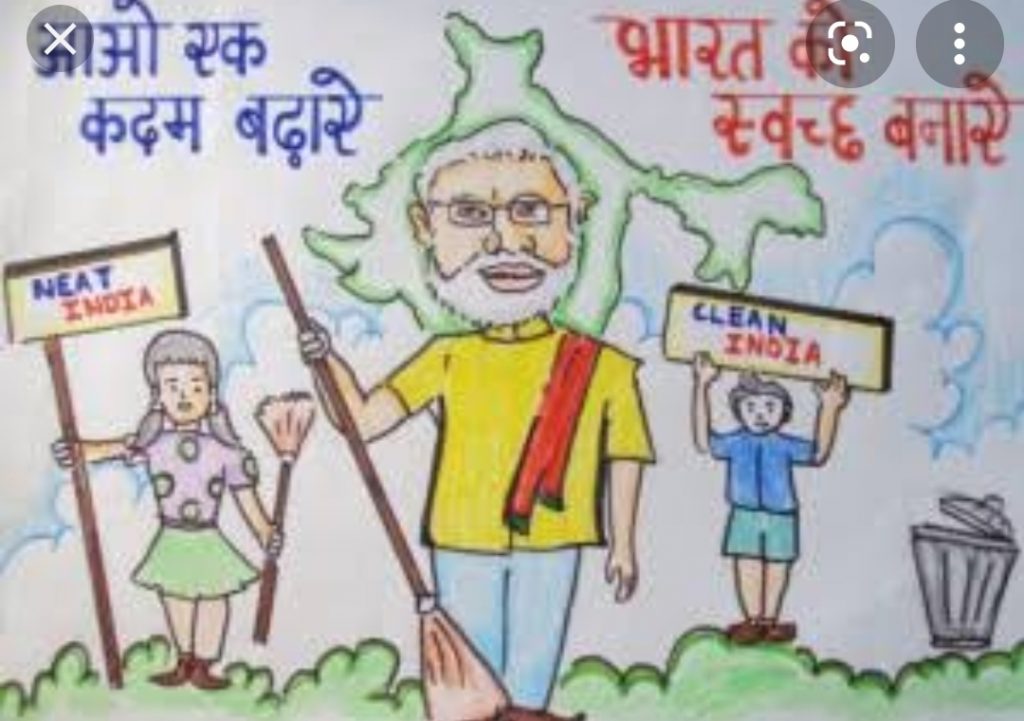 आओ एक
कदम बढ़ारे
भारत को
स्वच्छ बनारे
NEAT
INDIA
CLEAN
INDIA